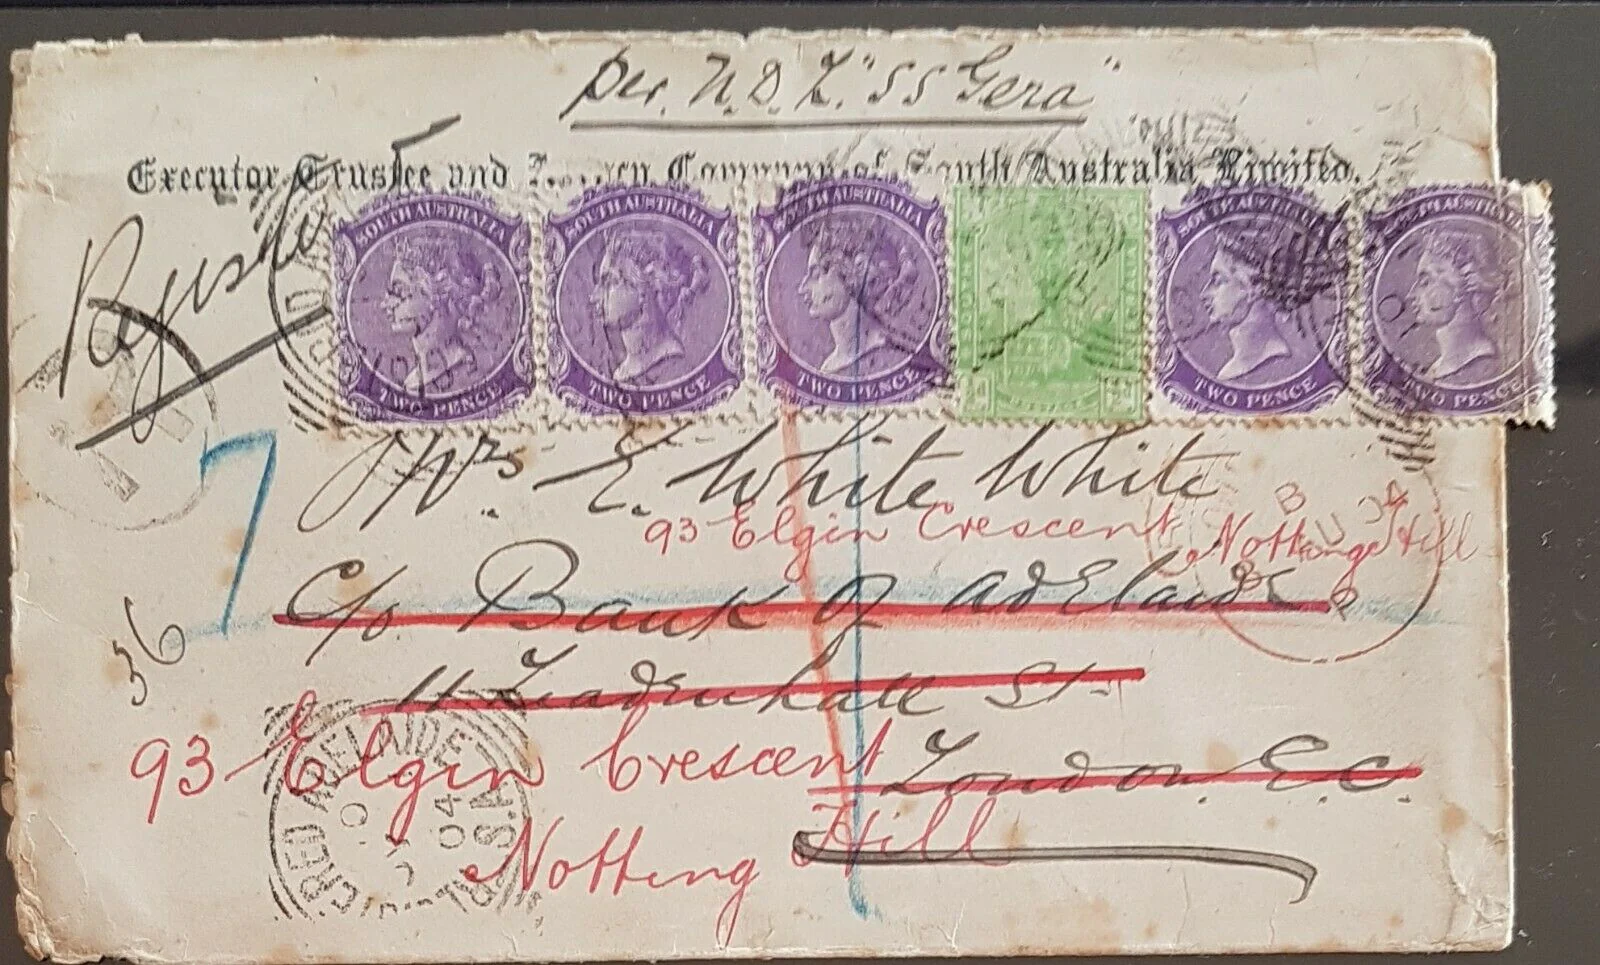 per. N.D.L. "SS Gera"
Executor Trustee and Agency Company of South Australia Limited.
SOUTH AUSTRALIA
TWO PENCE
SOUTH AUSTRALIA
TWO PENCE
SOUTH AUSTRALIA
TWO PENCE
SOUTH AUSTRALIA
TWO PENCE
SOUTH AUSTRALIA
TWO PENCE
Mrs. E. White White
93 Elgin Crescent Notting Hill
7
C/o. Bank of Adelaide
36
11 Leadenhall St
93 Elgin Crescent London. E.C.
Notting Hill
ADELAIDE
04
S.A.